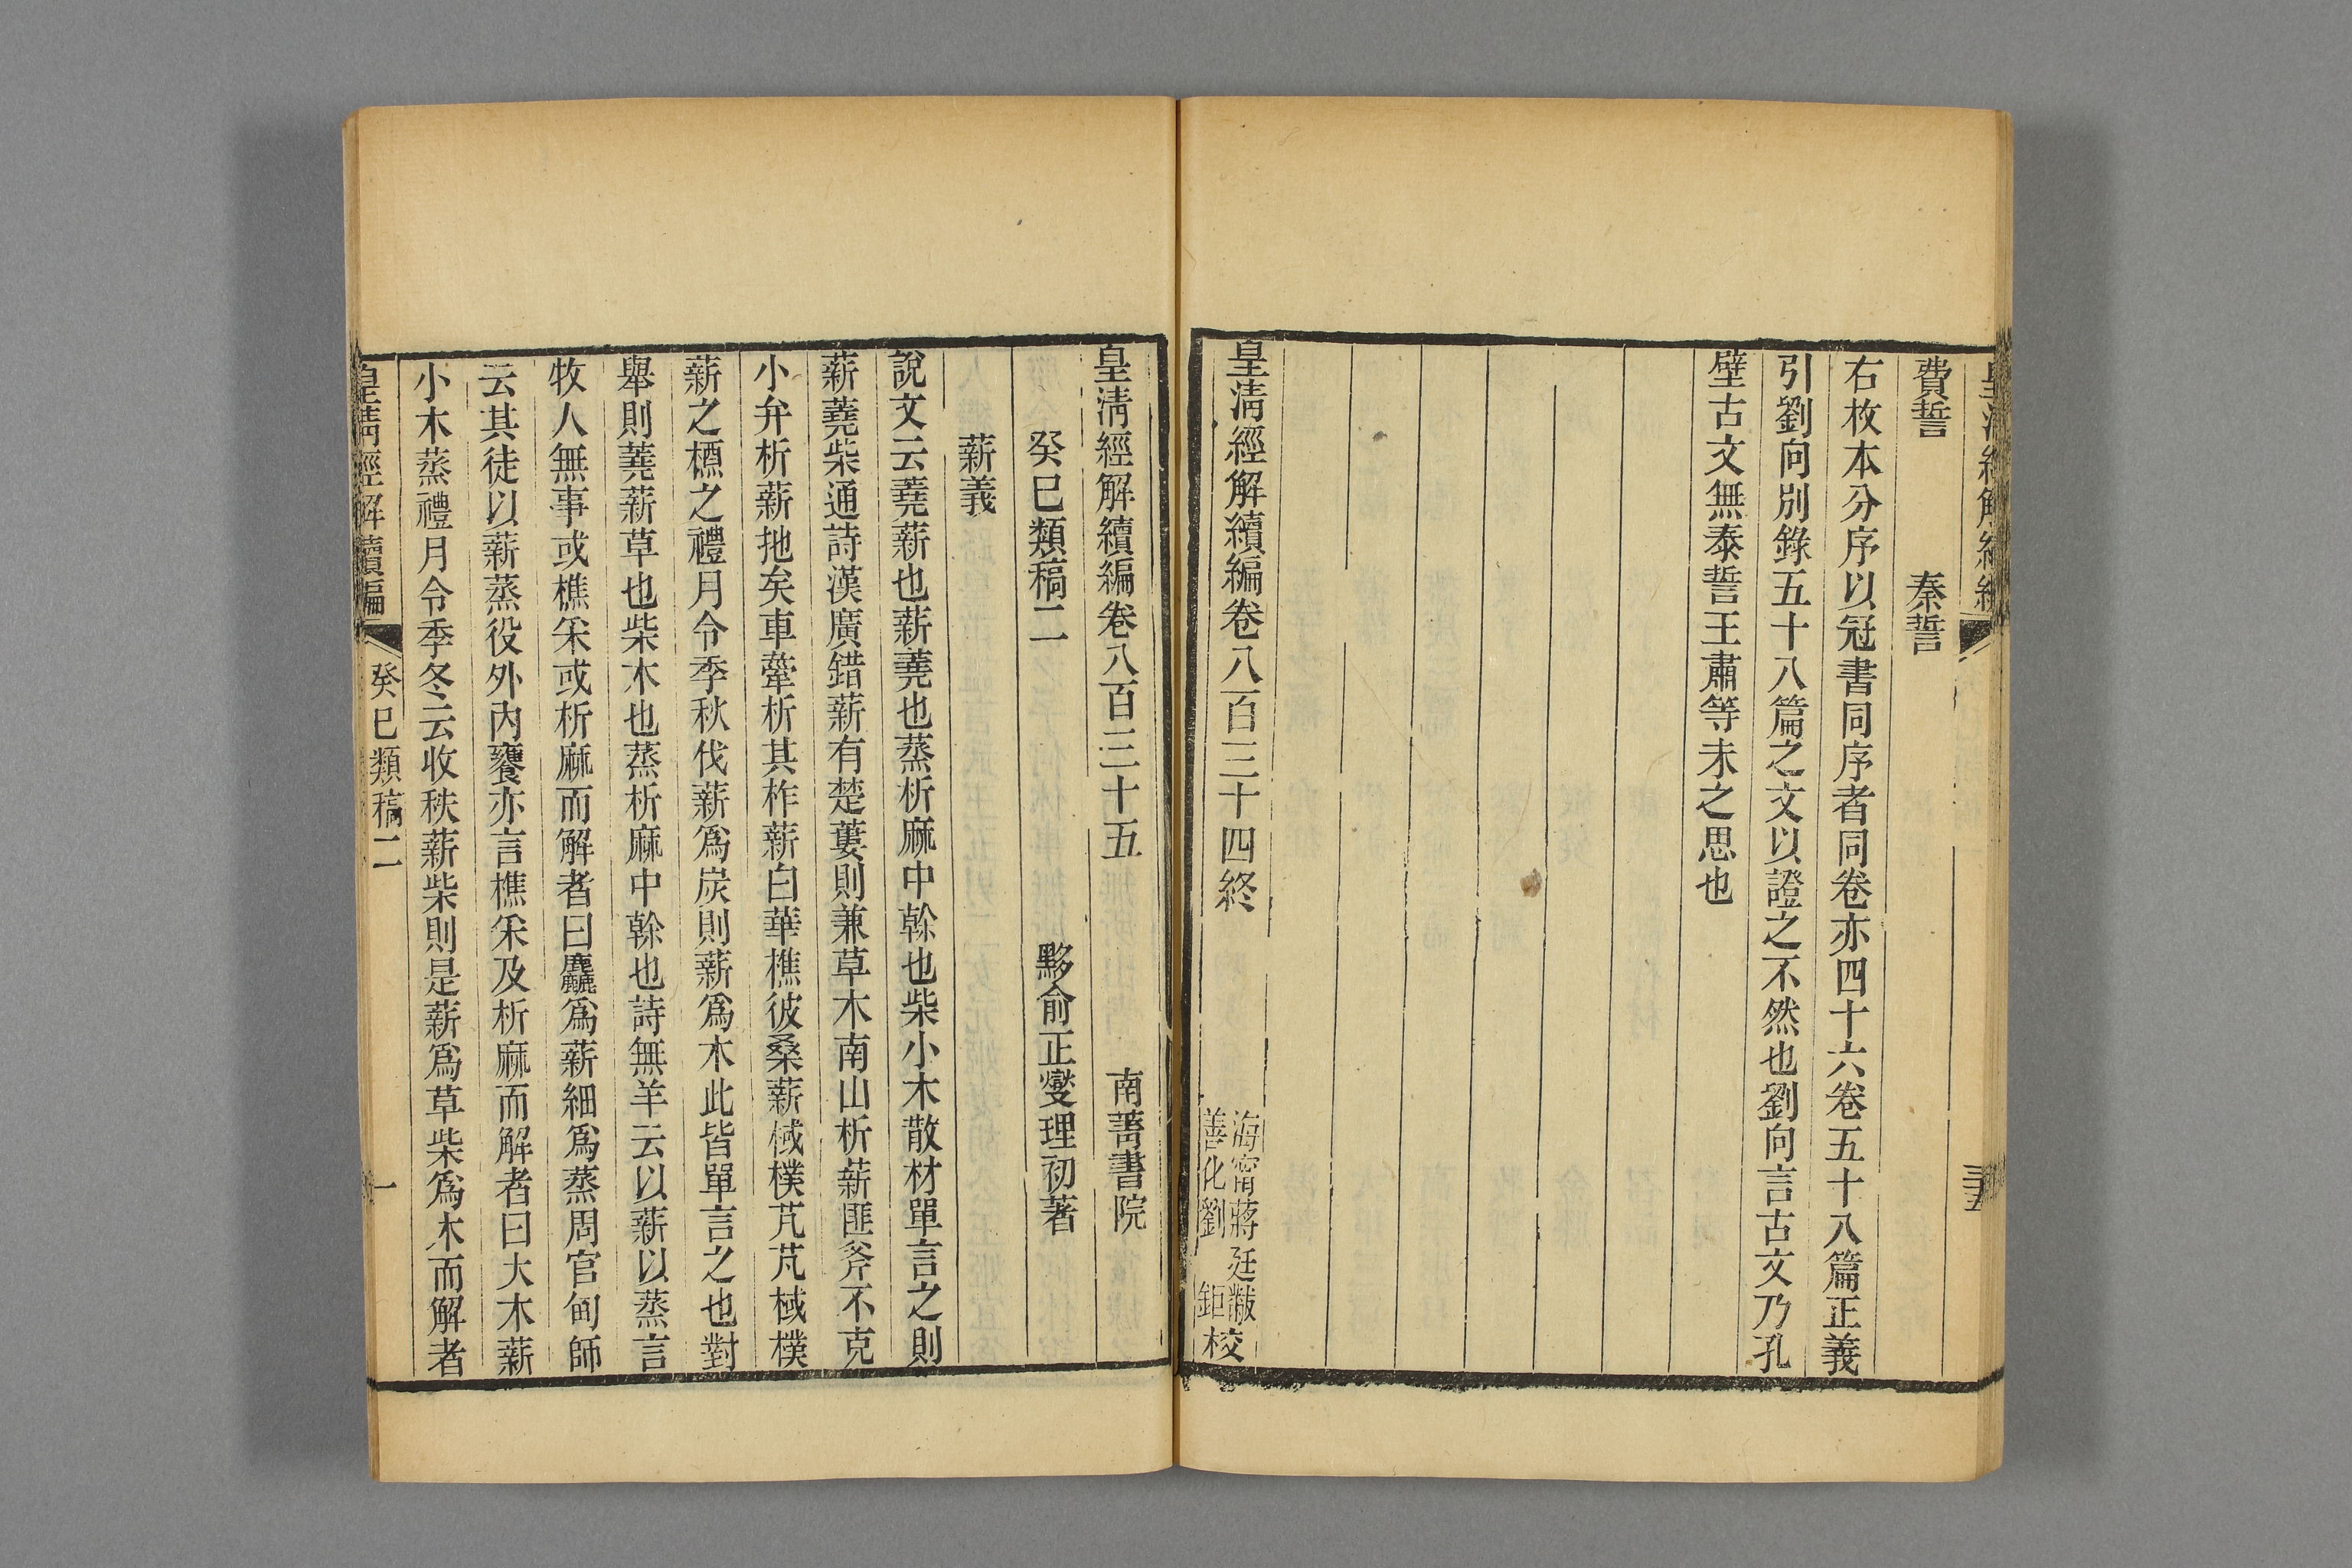 皇淸經解續編
三五
費誓　秦誓
右枚本分序以冠書同序者同卷亦四十六卷五十八篇正義
引劉向別錄五十八篇之文以證之不然也劉向言古文乃孔
壁古文無泰誓王肅等未之思也
皇淸經解續編卷八百三十四終
海甯蔣廷黻
善化劉　鉅校
皇淸經解續編卷八百三十五　南菁書院
癸巳類稿二　黟俞正燮理初著
薪義
說文云蕘薪也薪蕘也蒸析麻中榦也柴小木散材單言之則
薪蕘柴通詩漢廣錯薪有楚蔞則兼草木南山析薪匪斧不克
小弁析薪扡矣車舝析其柞薪白華樵彼桑薪棫樸芃芃棫樸
薪之槱之禮月令季秋伐薪爲炭則薪爲木此皆單言之也對
舉則蕘薪草也柴木也蒸析麻中榦也詩無羊云以薪以蒸言
牧人無事或樵采或析麻而解者曰麤爲薪細爲蒸周官甸師
云其徒以薪蒸役外內饔亦言樵采及析麻而解者曰大木薪
小木蒸禮月令季冬云收秩薪柴則是薪爲草柴爲木而解者
皇淸經解續編　癸巳類稿二　一